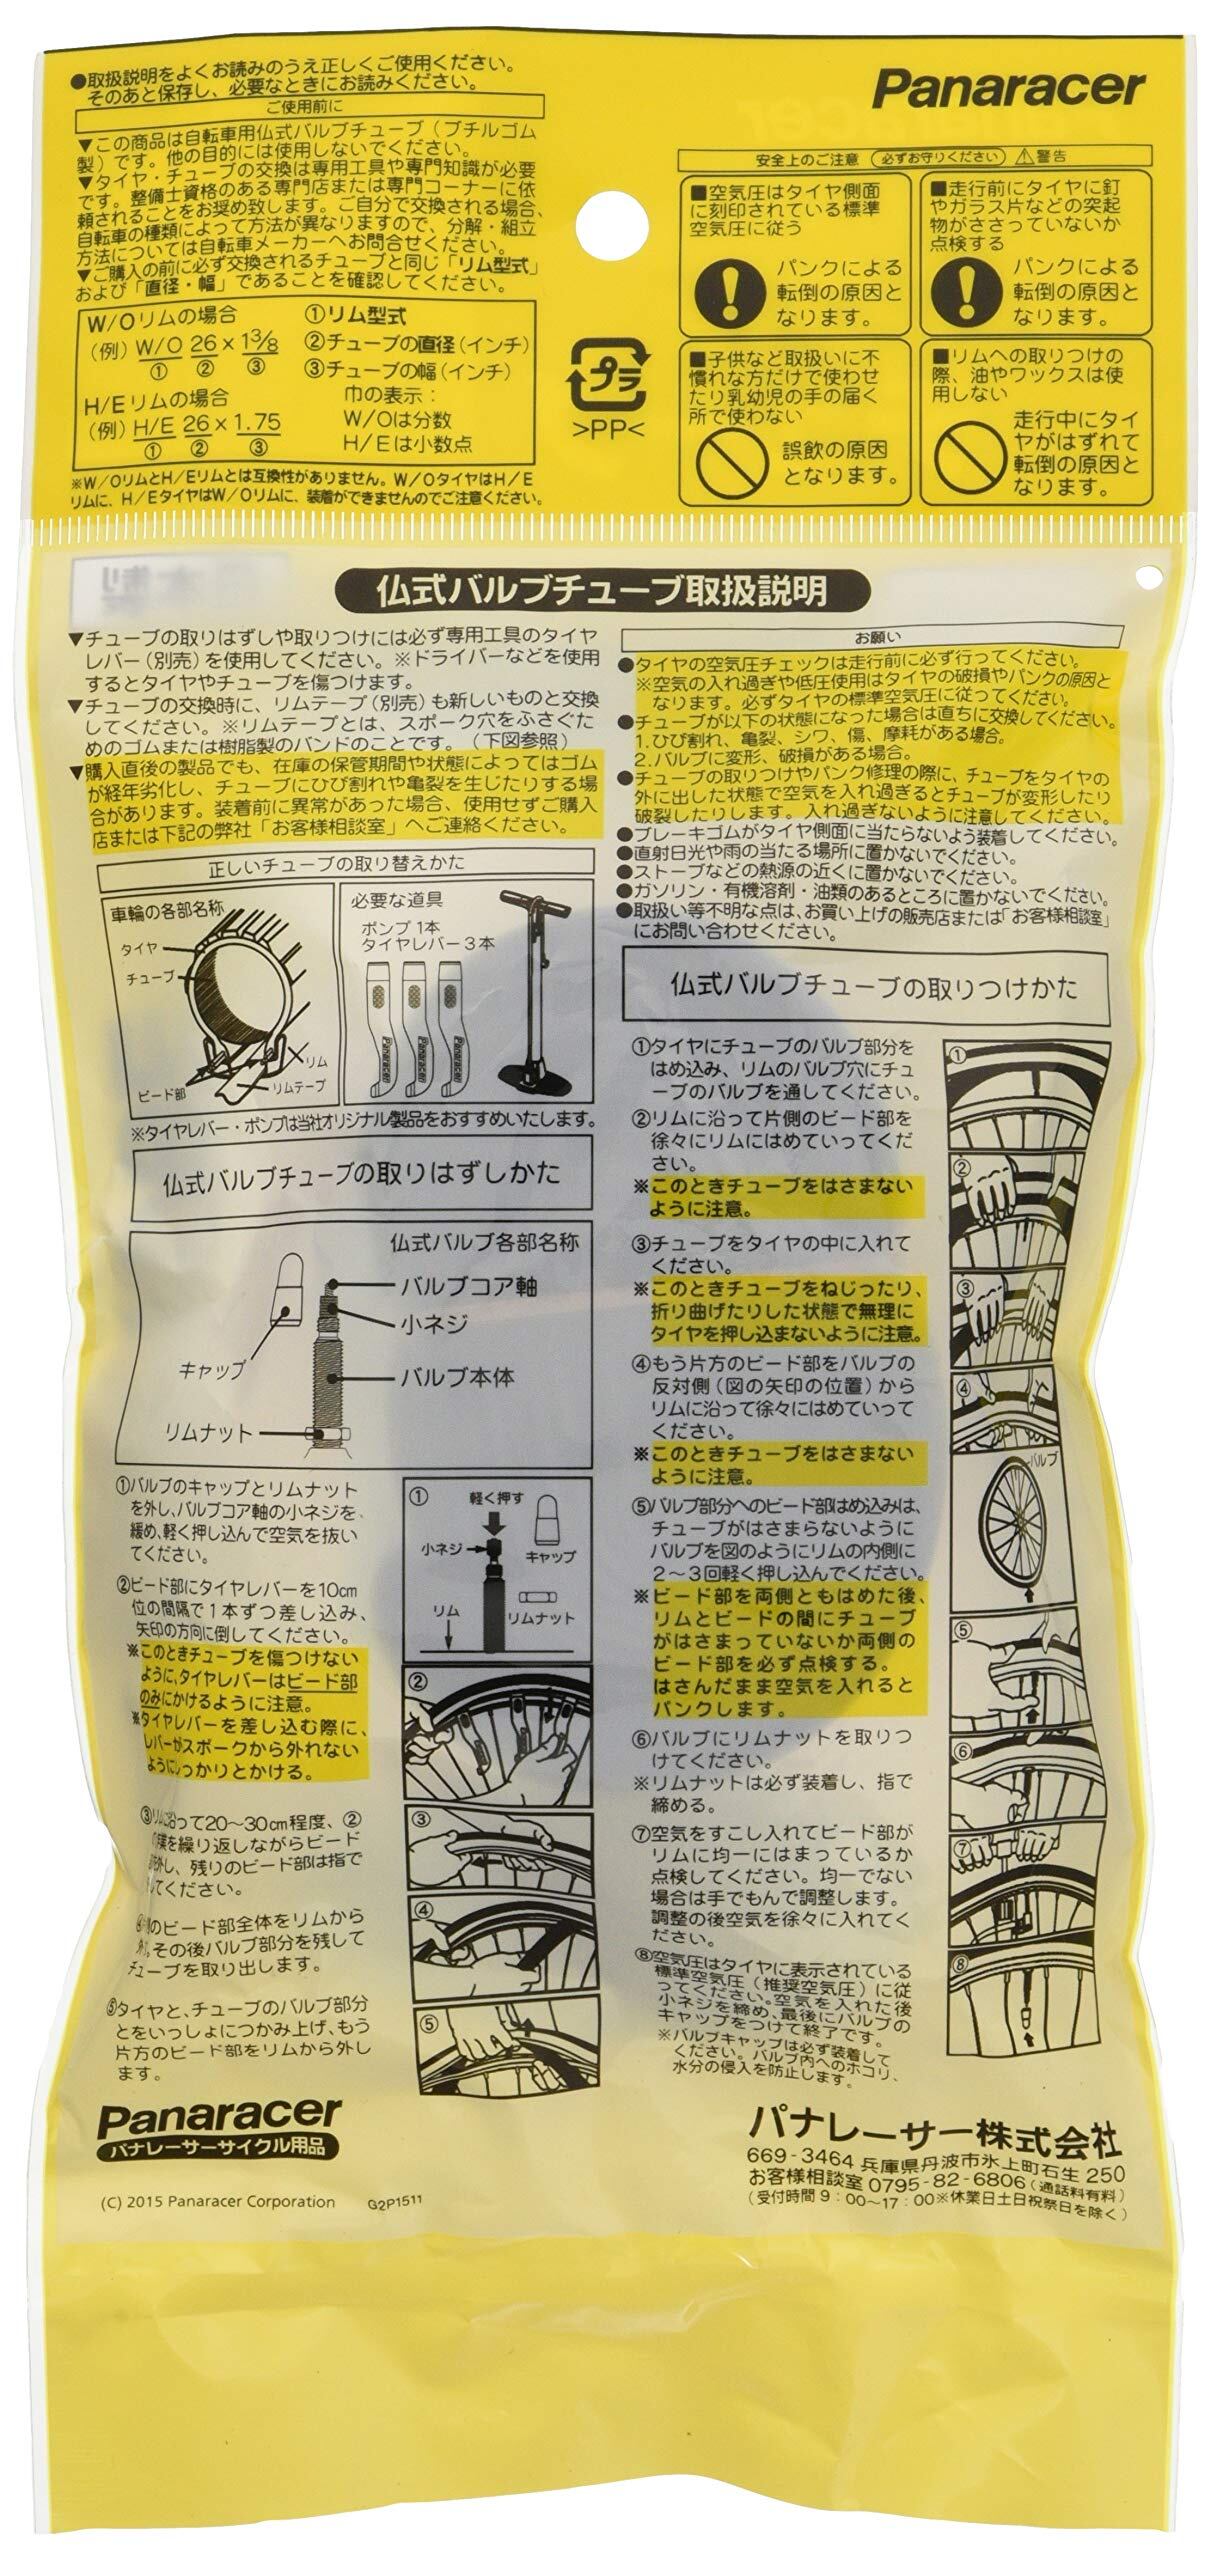 ●取扱説明をよくお読みのうえ正しくご使用ください。
そのあと保存し、必要なときにお読みください。
ご使用前に
▼この商品は自転車用仏式バルブチューブ（ブチルゴム
製）です。他の目的には使用しないでください。
▼タイヤ・チューブの交換は専用工具や専門知識が必要
です。整備士資格のある専門店または専門コーナーに依
頼されることをお奨め致します。ご自分で交換される場合、
自転車の種類によって方法が異なりますので、分解・組立
方法については自転車メーカーへお問合せください。
▼ご購入の前に必ず交換されるチューブと同じ「リム型式」
および「直径・幅」であることを確認してください。
W/Oリムの場合
（例）W/O 26 × 1 3/8
① ② ③
H/Eリムの場合
（例）H/E 26 × 1.75
① ② ③
①リム型式
②チューブの直径（インチ）
③チューブの幅（インチ）
巾の表示：
W/Oは分数
H/Eは小数点
※W/OリムとH/Eリムとは互換性がありません。W/OタイヤはH/E
リムに、H/EタイヤはW/Oリムに、装着ができませんのでご注意ください。
プラ
>PP<
Panaracer
安全上のご注意 必ずお守りください ⚠警告
■空気圧はタイヤ側面
に刻印されている標準
空気圧に従う
パンクによる
転倒の原因と
なります。
■走行前にタイヤに釘
やガラス片などの突起
物がささっていないか
点検する
パンクによる
転倒の原因と
なります。
■子供など取扱いに不
慣れな方だけで使わせ
たり乳幼児の手の届く
所で使わない
誤飲の原因
となります。
■リムへの取りつけの
際、油やワックスは使
用しない
走行中にタイ
ヤがはずれて
転倒の原因と
なります。
仏式バルブチューブ取扱説明
▼チューブの取りはずしや取りつけには必ず専用工具のタイヤ
レバー（別売）を使用してください。※ドライバーなどを使用
するとタイヤやチューブを傷つけます。
▼チューブの交換時に、リムテープ（別売）も新しいものと交換
してください。※リムテープとは、スポーク穴をふさぐた
めのゴムまたは樹脂製のバンドのことです。（下図参照）
▼購入直後の製品でも、在庫の保管期間や状態によってはゴム
が経年劣化し、チューブにひび割れや亀裂を生じたりする場
合があります。装着前に異常があった場合、使用せずご購入
店または下記の弊社「お客様相談室」へご連絡ください。
正しいチューブの取り替えかた
車輪の各部名称
タイヤ
チューブ
リム
ビード部
リムテープ
必要な道具
ポンプ 1本
タイヤレバー 3本
Panaracer
Panaracer
Panaracer
※タイヤレバー・ポンプは当社オリジナル製品をおすすめいたします。
仏式バルブチューブの取りはずしかた
仏式バルブ各部名称
バルブコア軸
小ネジ
キャップ
バルブ本体
リムナット
①バルブのキャップとリムナット
を外し、バルブコア軸の小ネジを、
緩め、軽く押し込んで空気を抜い
てください。
②ビード部にタイヤレバーを10cm
位の間隔で1本ずつ差し込み、
矢印の方向に倒してください。
※このときチューブを傷つけない
ように、タイヤレバーはビード部
のみにかけるように注意。
※タイヤレバーを差し込む際に、
レバーがスポークから外れない
ようにしっかりとかける。
③リムに沿って20〜30cm程度、②
業を繰り返しながらビード
外し、残りのビード部は指で
してください。
のビード部全体をリムから
その後バルブ部分を残して
チューブを取り出します。
⑤タイヤと、チューブのバルブ部分
とをいっしょにつかみ上げ、もう
片方のビード部をリムから外し
ます。
①
軽く押す
小ネジ
キャップ
リム
リムナット
②
③
④
⑤
お願い
●タイヤの空気圧チェックは走行前に必ず行ってください。
※空気の入れ過ぎや低圧使用はタイヤの破損やパンクの原因と
なります。必ずタイヤの標準空気圧に従ってください。
●チューブが以下の状態になった場合は直ちに交換してください。
1.ひび割れ、亀裂、シワ、傷、摩耗がある場合。
2.バルブに変形、破損がある場合。
●チューブの取りつけやパンク修理の際に、チューブをタイヤの
外に出した状態で空気を入れ過ぎるとチューブが変形したり
破裂したりします。入れ過ぎないように注意してください。
●ブレーキゴムがタイヤ側面に当たらないよう装着してください。
●直射日光や雨の当たる場所に置かないでください。
●ストーブなどの熱源の近くに置かないでください。
●ガソリン・有機溶剤・油類のあるところに置かないでください。
●取扱い等不明な点は、お買い上げの販売店または「お客様相談室」
にお問い合わせください。
仏式バルブチューブの取りつけかた
①タイヤにチューブのバルブ部分を
はめ込み、リムのバルブ穴にチュ
ーブのバルブを通してください。
②リムに沿って片側のビード部を
徐々にリムにはめていってくだ
さい。
※このときチューブをはさまない
ように注意。
③チューブをタイヤの中に入れて
ください。
※このときチューブをねじったり、
折り曲げたりした状態で無理に
タイヤを押し込まないように注意。
④もう片方のビード部をバルブの
反対側（図の矢印の位置）から
リムに沿って徐々にはめていって
ください。
※このときチューブをはさまない
ように注意。
⑤バルブ部分へのビード部はめ込みは、
チューブがはさまらないように
バルブを図のようにリムの内側に
2〜3回軽く押し込んでください。
※ビード部を両側ともはめた後、
リムとビードの間にチューブ
がはさまっていないか両側の
ビード部を必ず点検する。
はさんだまま空気を入れると
パンクします。
⑥バルブにリムナットを取りつ
けてください。
※リムナットは必ず装着し、指で
締める。
⑦空気をすこし入れてビード部が
リムに均一にはまっているか
点検してください。均一でない
場合は手でもんで調整します。
調整の後空気を徐々に入れてく
ださい。
⑧空気圧はタイヤに表示されている
標準空気圧（推奨空気圧）に従
ってください。空気を入れた後
小ネジを締め、最後にバルブの
キャップをつけて終了です。
※バルブキャップは必ず装着して
ください。バルブ内へのホコリ、
水分の侵入を防止します。
①
②
③
④
バルブ
⑤
⑥
⑦
⑧
Panaracer
パナレーサーサイクル用品
(C) 2015 Panaracer Corporation G2P1511
パナレーサー株式会社
669-3464 兵庫県丹波市氷上町石生 250
お客様相談室 0795-82-6806（通話料有料）
（受付時間 9：00〜17：00※休業日土日祝祭日を除く）